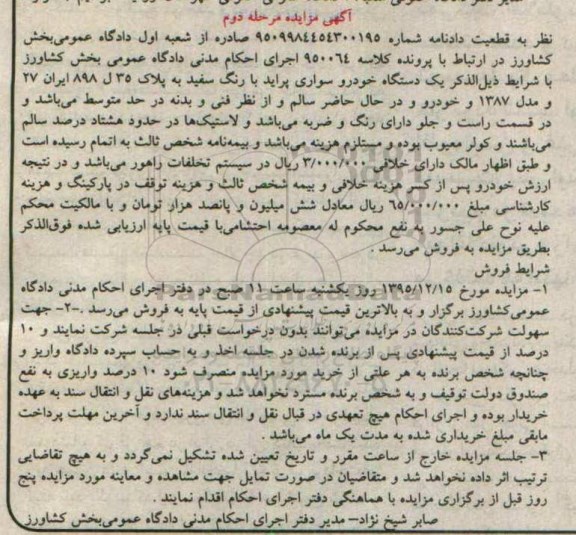 آگهی مزایده مرحله دوم
نظر به قطعیت دادنامه شماره ۹۵۰۹۹۸۴۴۵۴۳۰۰۱۹۵ صادره از شعبه اول دادگاه عمومی‌بخش
کشاورز در ارتباط با پرونده کلاسه ۹۵۰۰۶۴ اجرای احکام مدنی دادگاه عمومی بخش کشاورز
با شرایط ذیل‌الذکر یک دستگاه خودرو سواری پراید با رنگ سفید به پلاک ۳۵ ل ۸۹۸ ایران ۲۷
و مدل ۱۳۸۷ و خودرو و در حال حاضر سالم و از نظر فنی و بدنه در حد متوسط می‌باشد و
در قسمت راست و جلو دارای رنگ و ضربه می‌باشد و لاستیک‌ها در حدود هشتاد درصد سالم
می‌باشند و کولر معیوب بوده و مستلزم هزینه می‌باشد و بیمه‌نامه شخص ثالث به اتمام رسیده است
و طبق اظهار مالک دارای خلافی ۳/۰۰۰/۰۰۰ ریال در سیستم تخلفات راهور می‌باشد و در نتیجه
ارزش خودرو پس از کسر هزینه خلافی و بیمه شخص ثالث و هزینه توقف در پارکینگ و هزینه
کارشناسی مبلغ ۶۵/۰۰۰/۰۰۰ ریال معادل شش میلیون و پانصد هزار تومان و با مالکیت محکم
علیه نوح علی جسور به نفع محکوم له معصومه احتشامی‌با قیمت پایه ارزیابی شده فوق‌الذکر
بطریق مزایده به فروش می‌رسد .
شرایط فروش
۱- مزایده مورخ ۱۳۹۵/۱۲/۱۵ روز یکشنبه ساعت ۱۱ صبح در دفتر اجرای احکام مدنی دادگاه
عمومی‌کشاورز برگزار و به بالاترین قیمت پیشنهادی از قیمت پایه به فروش می‌رسد .-۲- جهت
سهولت شرکت‌کنندگان در مزایده می‌توانند بدون درخواست قبلی در جلسه شرکت نمایند و ۱۰
درصد از قیمت پیشنهادی پس از برنده شدن در جلسه اخذ و به حساب سپرده دادگاه واریز و
چنانچه شخص برنده به هر علتی از خرید مورد مزایده منصرف شود ۱۰ درصد واریزی به نفع
صندوق دولت توقیف و به شخص برنده مسترد نخواهد شد و هزینه‌های نقل و انتقال سند به عهده
خریدار بوده و اجرای احکام هیچ تعهدی در قبال نقل و انتقال سند ندارد و آخرین مهلت پرداخت
مابقی مبلغ خریداری شده به مدت یک ماه می‌باشد .
۳- جلسه مزایده خارج از ساعت مقرر و تاریخ تعیین شده تشکیل نمی‌گردد و به هیچ تقاضایی
ترتیب اثر داده نخواهد شد و متقاضیان در صورت تمایل جهت مشاهده و معاینه مورد مزایده پنج
روز قبل از برگزاری مزایده با هماهنگی دفتر اجرای احکام اقدام نمایند .
صابر شیخ نژاد– مدیر دفتر اجرای احکام مدنی دادگاه عمومی‌بخش کشاورز